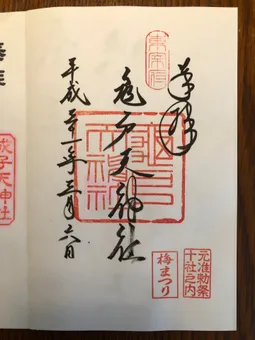 東宰府
奉拝
亀戸天神社
平成三十一年三月六日
元准勅祭
十社之内
梅まつり
成子天神社